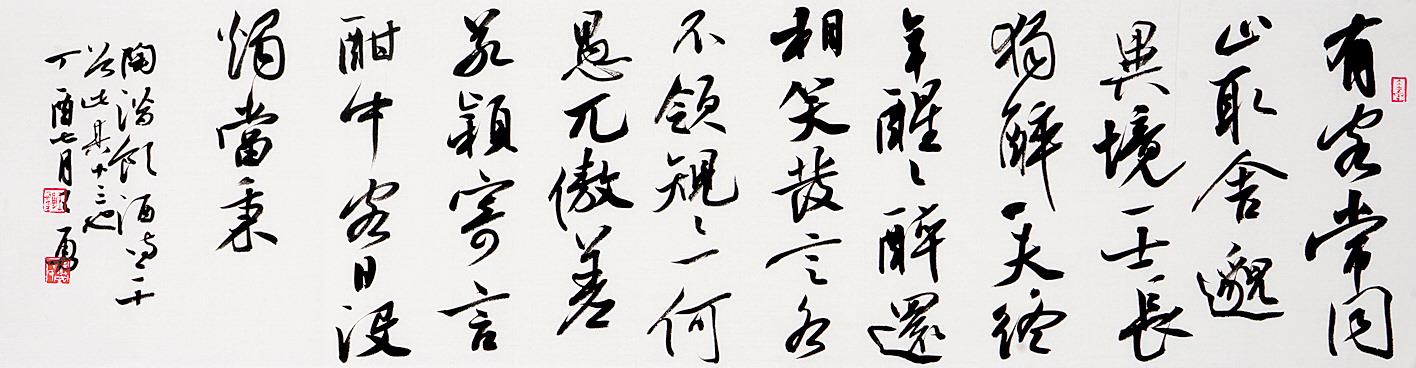 有客常同
止取舍邈
異境一士長
獨醉一夫終
年醒〻醉還
相笑發言各
不領規〻一何
愚兀傲差
若穎寄言
酣中客日没
燭當秉
陶潛飲酒詩二十
首此其十三也
丁酉七月勇